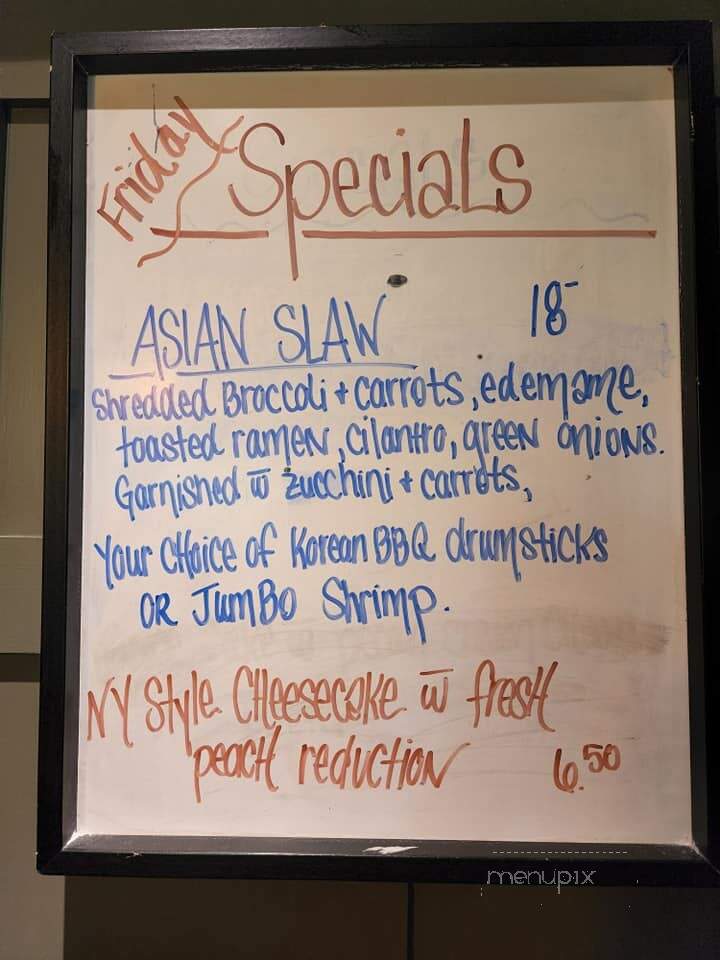 Friday
Specials
ASIAN SLAW 18-
Shredded Broccoli + carrots, edemame,
toasted ramen, cilantro, green onions.
Garnished w zucchini + carrots,
Your CHoice of Korean BBQ drumsticks
OR JUMBO Shrimp.
NY Style CHeesecake w fresh
peach reduction 6.50
menupix